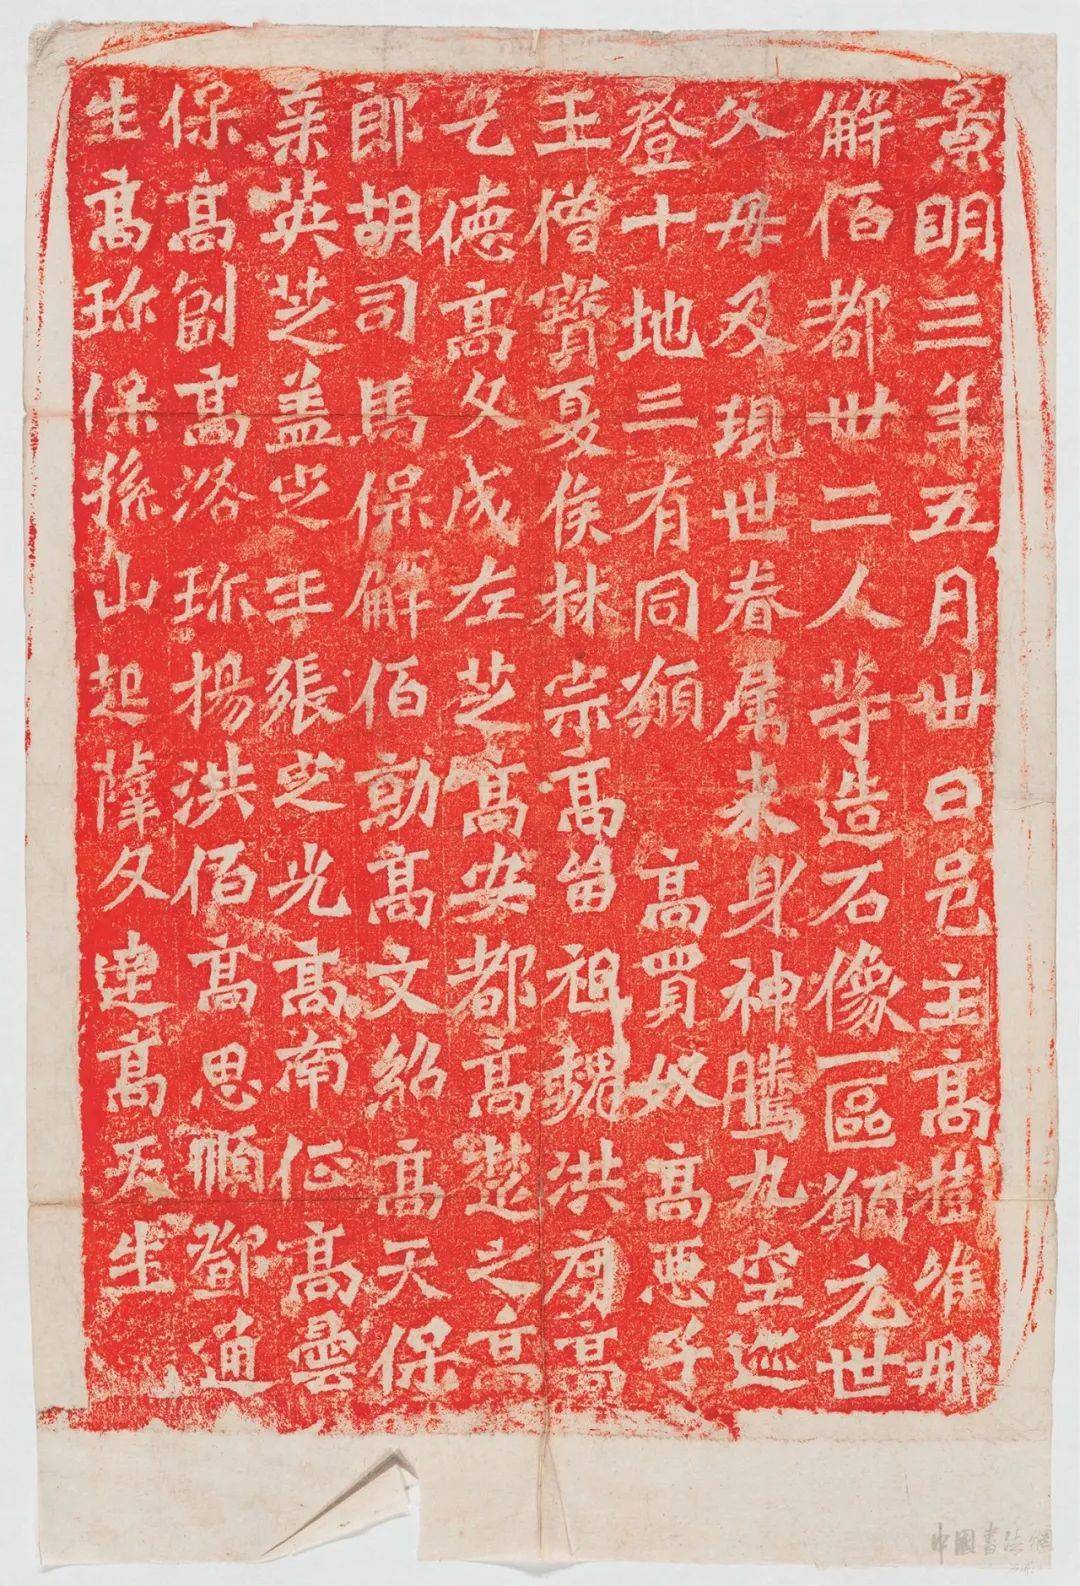 景明三年五月卅日邑主高樹唯那
解佰都卅二人等造石像一區願元世
父母及現世眷属来身神騰九空迹
登十地三有同願 高買奴 高悪子
王僧寶夏侯林宗高留祖魏洪度高
乞德高文成左芝高安都高楚之高
郎胡司馬保解佰勍高文紹高天保
英芝盖之王張之光高南征高曇
保高創高洛珎楊洪佰高思順鄧通
生高珎保孫山起薩文達高天生
中國書法網